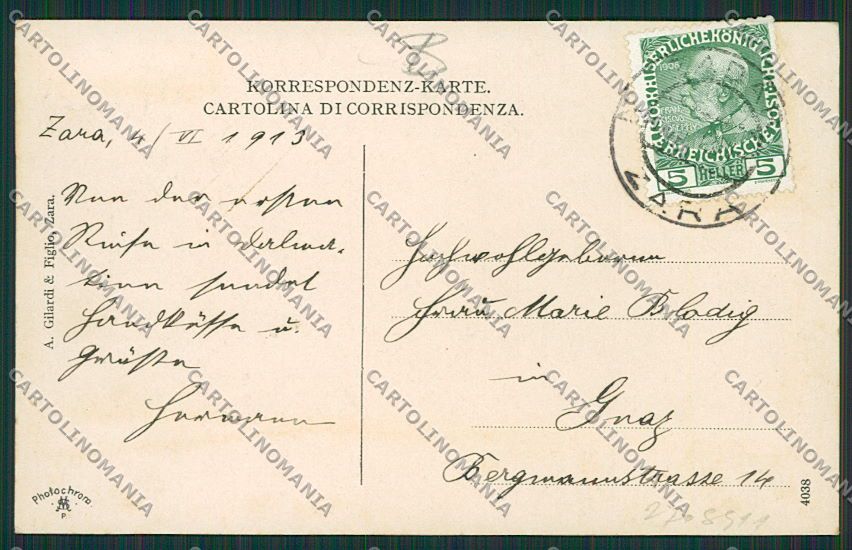 KORRESPONDENZ-KARTE.
CARTOLINA DI CORRISPONDENZA.
Zara, 4/VI 1913
Von der ersten
Reise in Dalma-
tien sendet
Handküsse u.
Grüße
Hermann
A. Gilardi & Figlio, Zara.
Photochrom.
P
KAISERLICHE KÖNIGLICHE
ÖSTERREICHISCHE POST
1908
5 HELLER 5
ZARA
Hochwohlgeboren
Frau Marie Bladig
in
Graz
Bergmannstrasse 14
4038
CARTOLINOMANIA